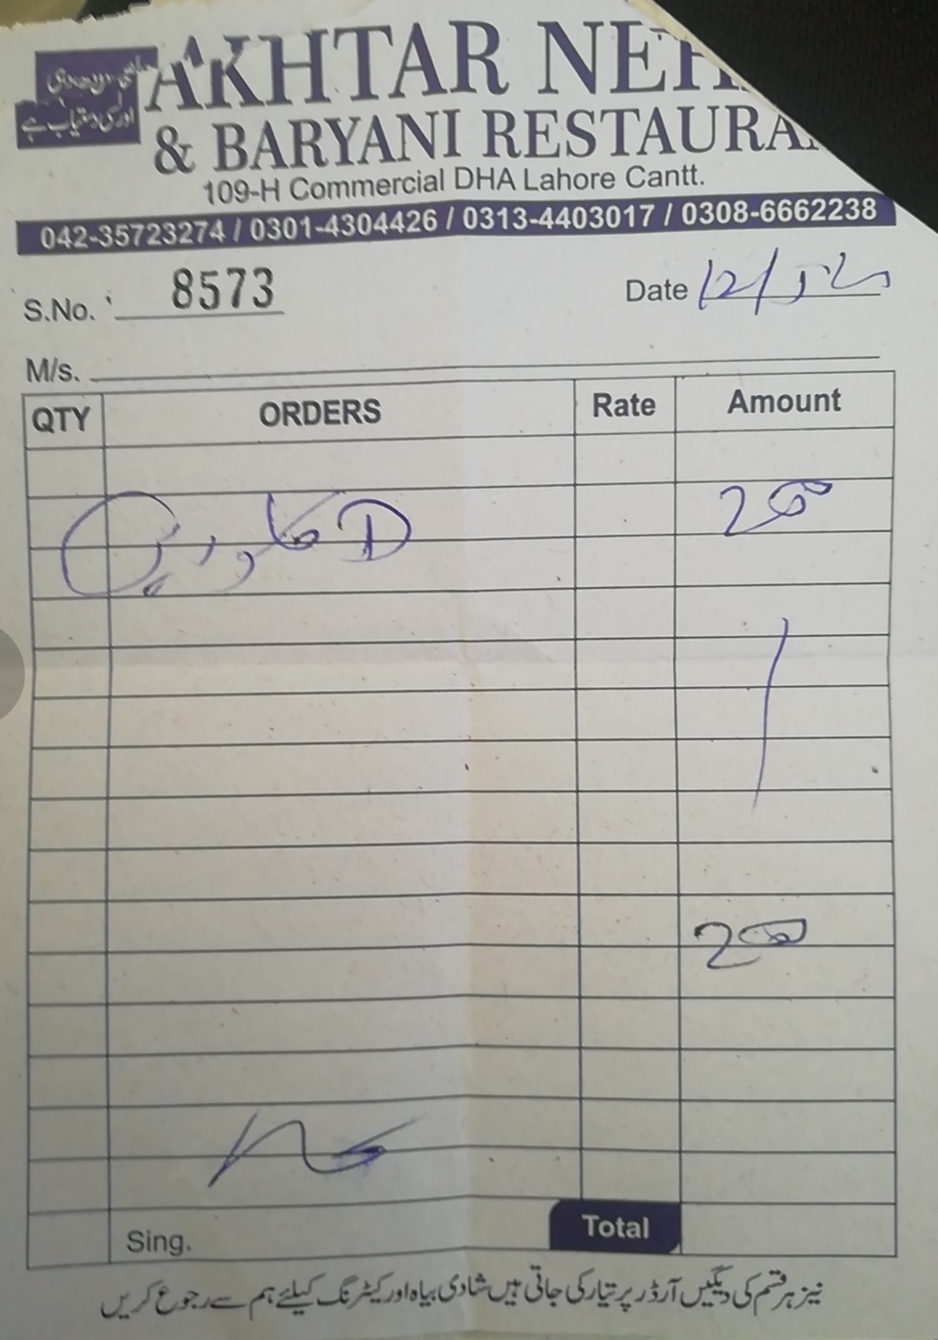 AKHTAR NEH
& BARYANI RESTAURA
109-H Commercial DHA Lahore Cantt.
042-35723274 / 0301-4304426 / 0313-4403017 / 0308-6662238
S.No. 8573 Date 12/
M/s.
QTY ORDERS Rate Amount
200
200
Total
Sing.
نیز ہر قسم کی دیگیں آرڈر پر تیار کی جاتی ہیں شادی بیاہ اور کیٹرنگ کیلئے ہم سے رجوع کریں